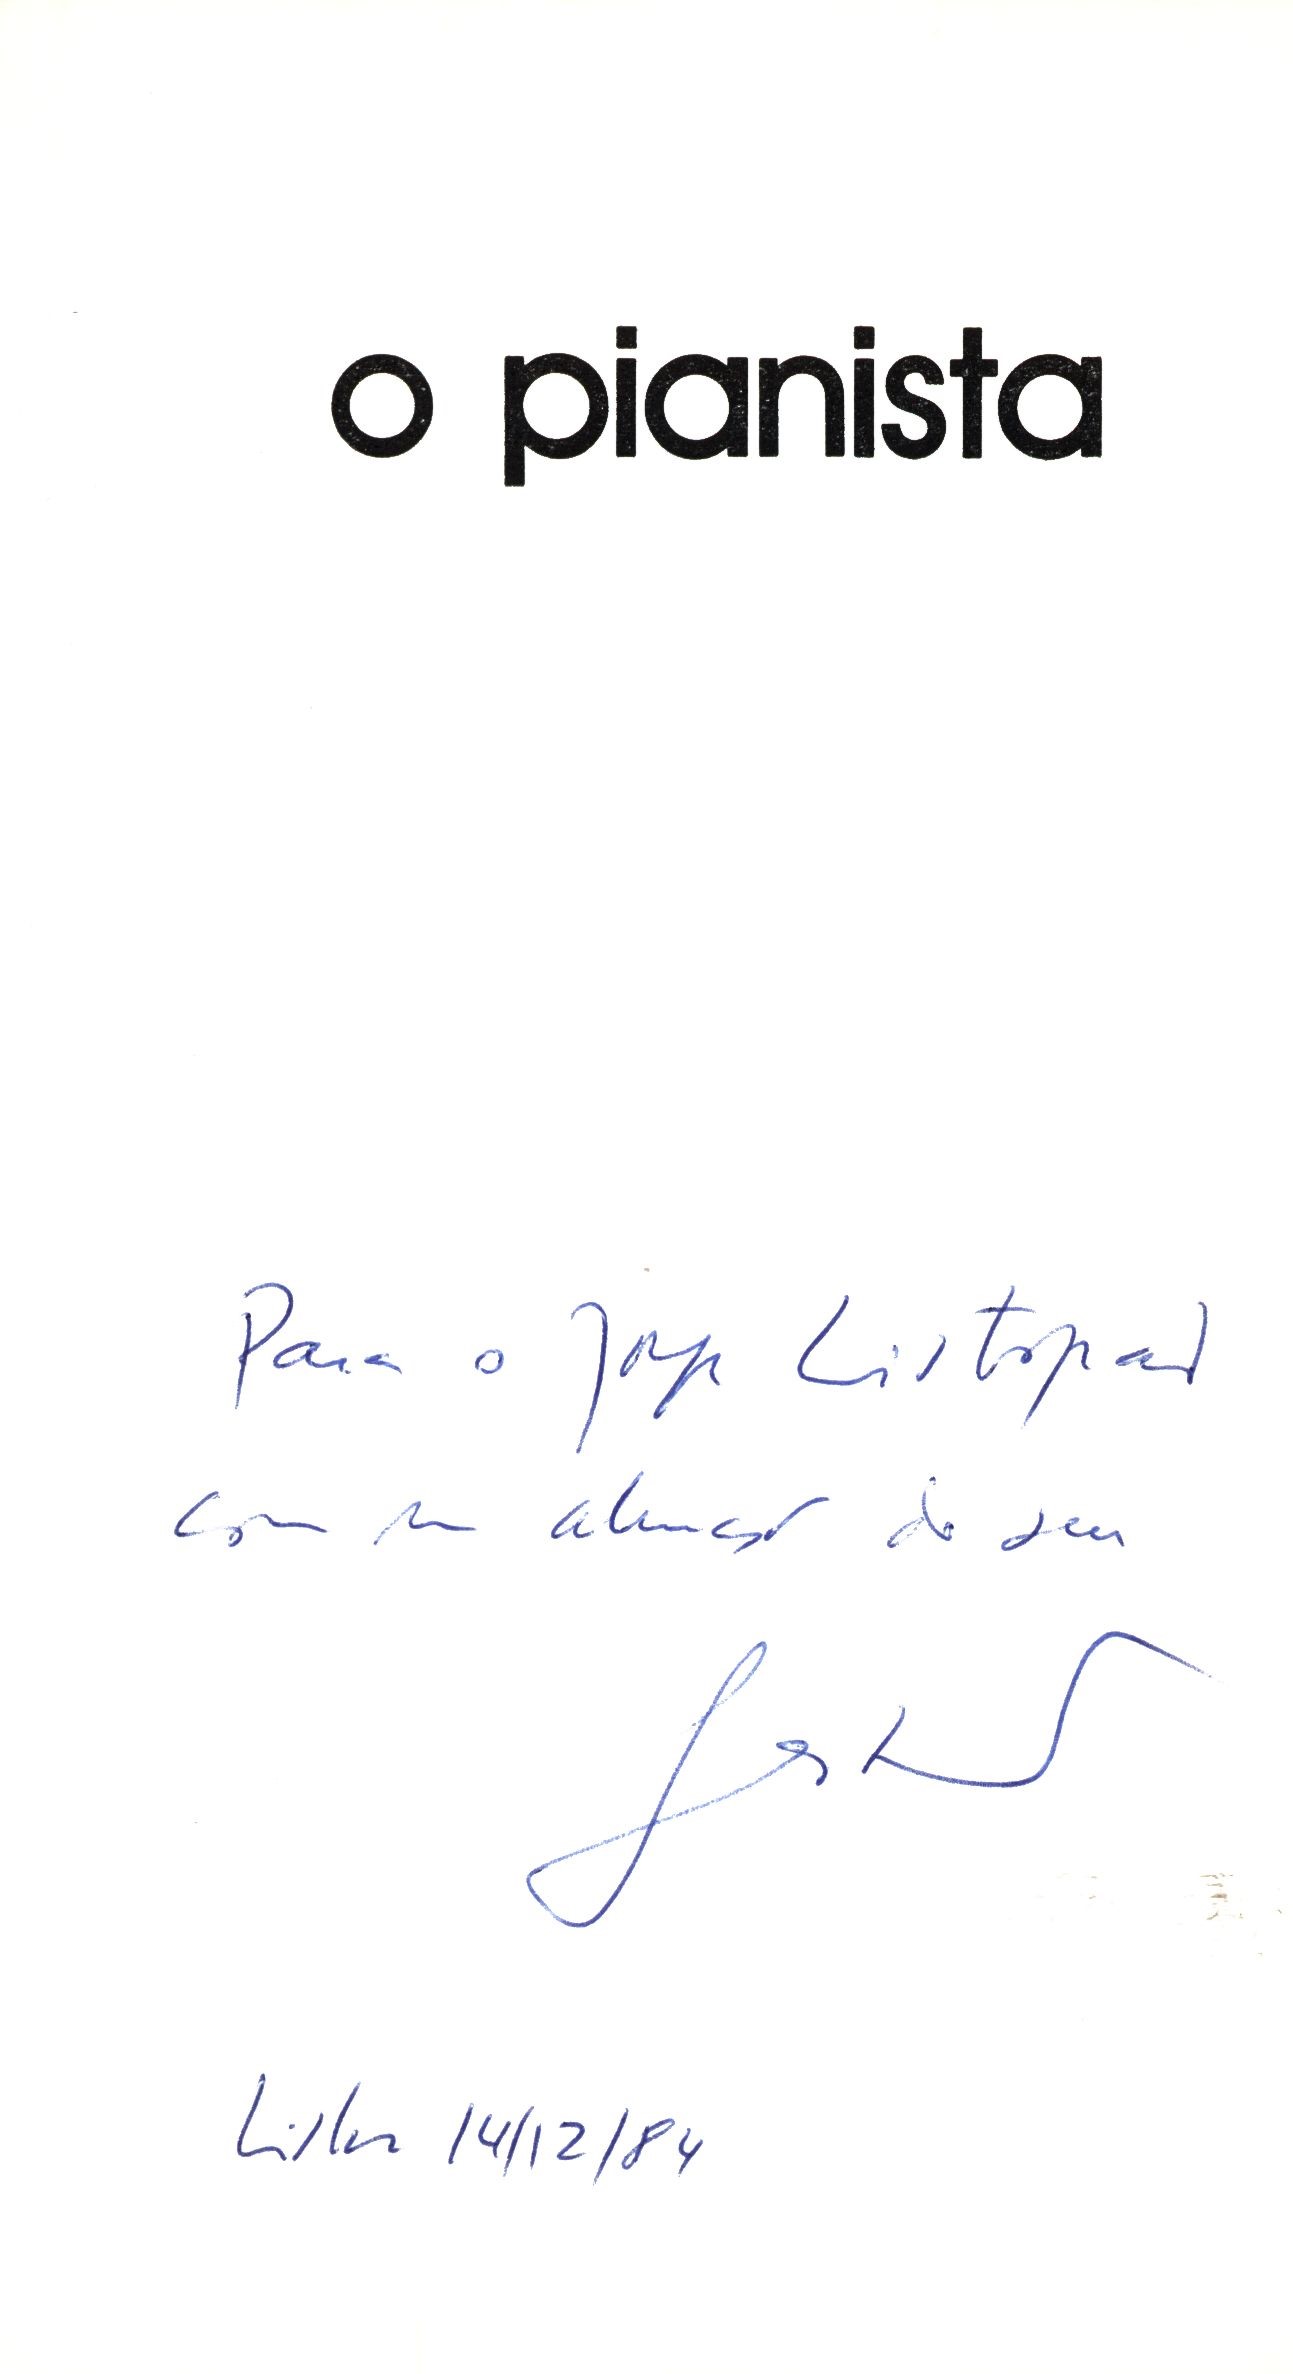 o pianista
Para o Jorge Listopad
com um abraço do seu
Lisboa 14/12/84